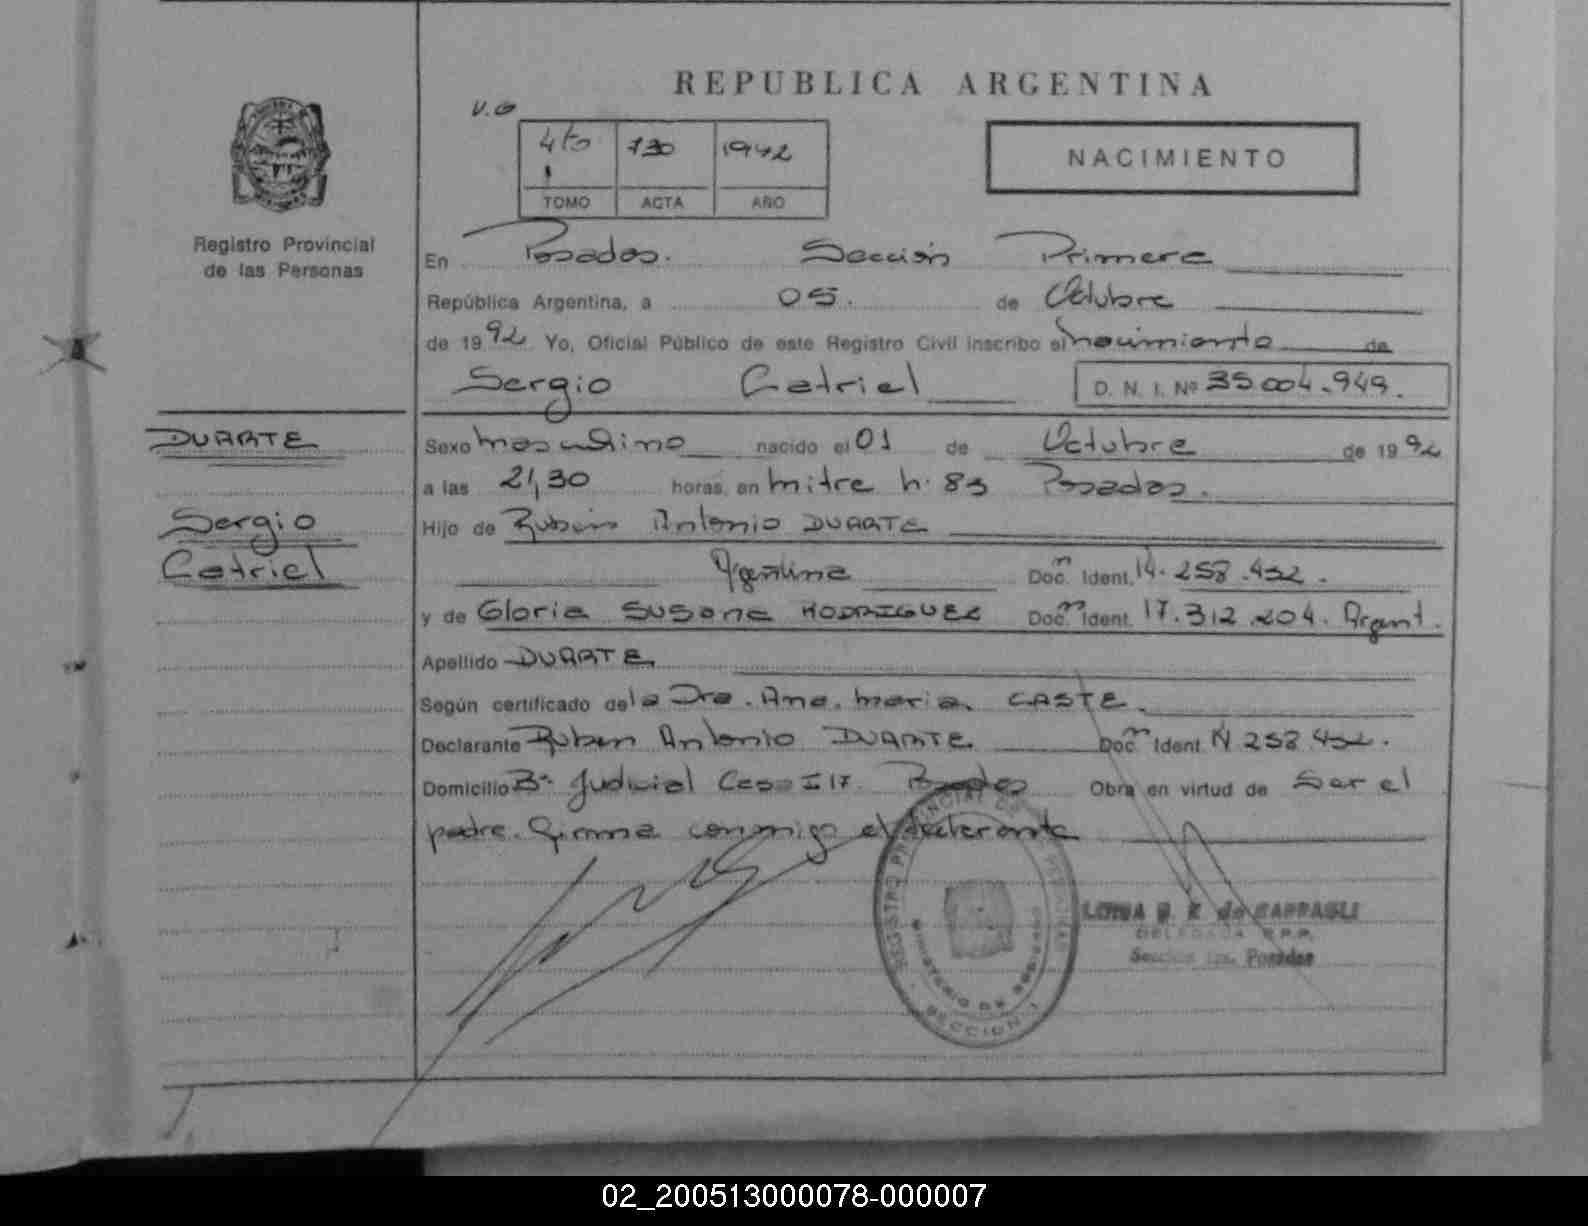 REPUBLICA ARGENTINA
V.G
4to 730 1992
TOMO ACTA AÑO
NACIMIENTO
Registro Provincial
de las Personas
En Posadas. Sección Primera
República Argentina, a 05. de Octubre
de 1992 Yo, Oficial Público de este Registro Civil inscribo el nacimiento de
Sergio Catriel D. N. I. Nº 35.004.949.
DUARTE
Sergio
Catriel
Sexo masculino nacido el 01 de Octubre de 1992
a las 21,30 horas, en mitre n. 83 Posadas.
Hijo de Rubén Antonio DUARTE
Argentina Doc. Ident. 14.258.432.
y de Gloria SUSana RODRIGUEZ Doc. Ident. 17.312.204. Argent.
Apellido DUARTE
Según certificado de la Dra. Ana. maria. CASTE.
Declarante Ruben Antonio DUARTE Doc. Ident 14 258.432.
Domicilio Bº Judicial Casa I 17. Posadas Obra en virtud de Ser el
padre. Firma conmigo el declarante
REGISTRO PROVINCIAL DE LAS PERSONAS
MINISTERIO DE GOBIERNO
SECCION 1
B. de
DELEGADA R.P.P.
Sección 1ra. Posadas
02_200513000078-000007